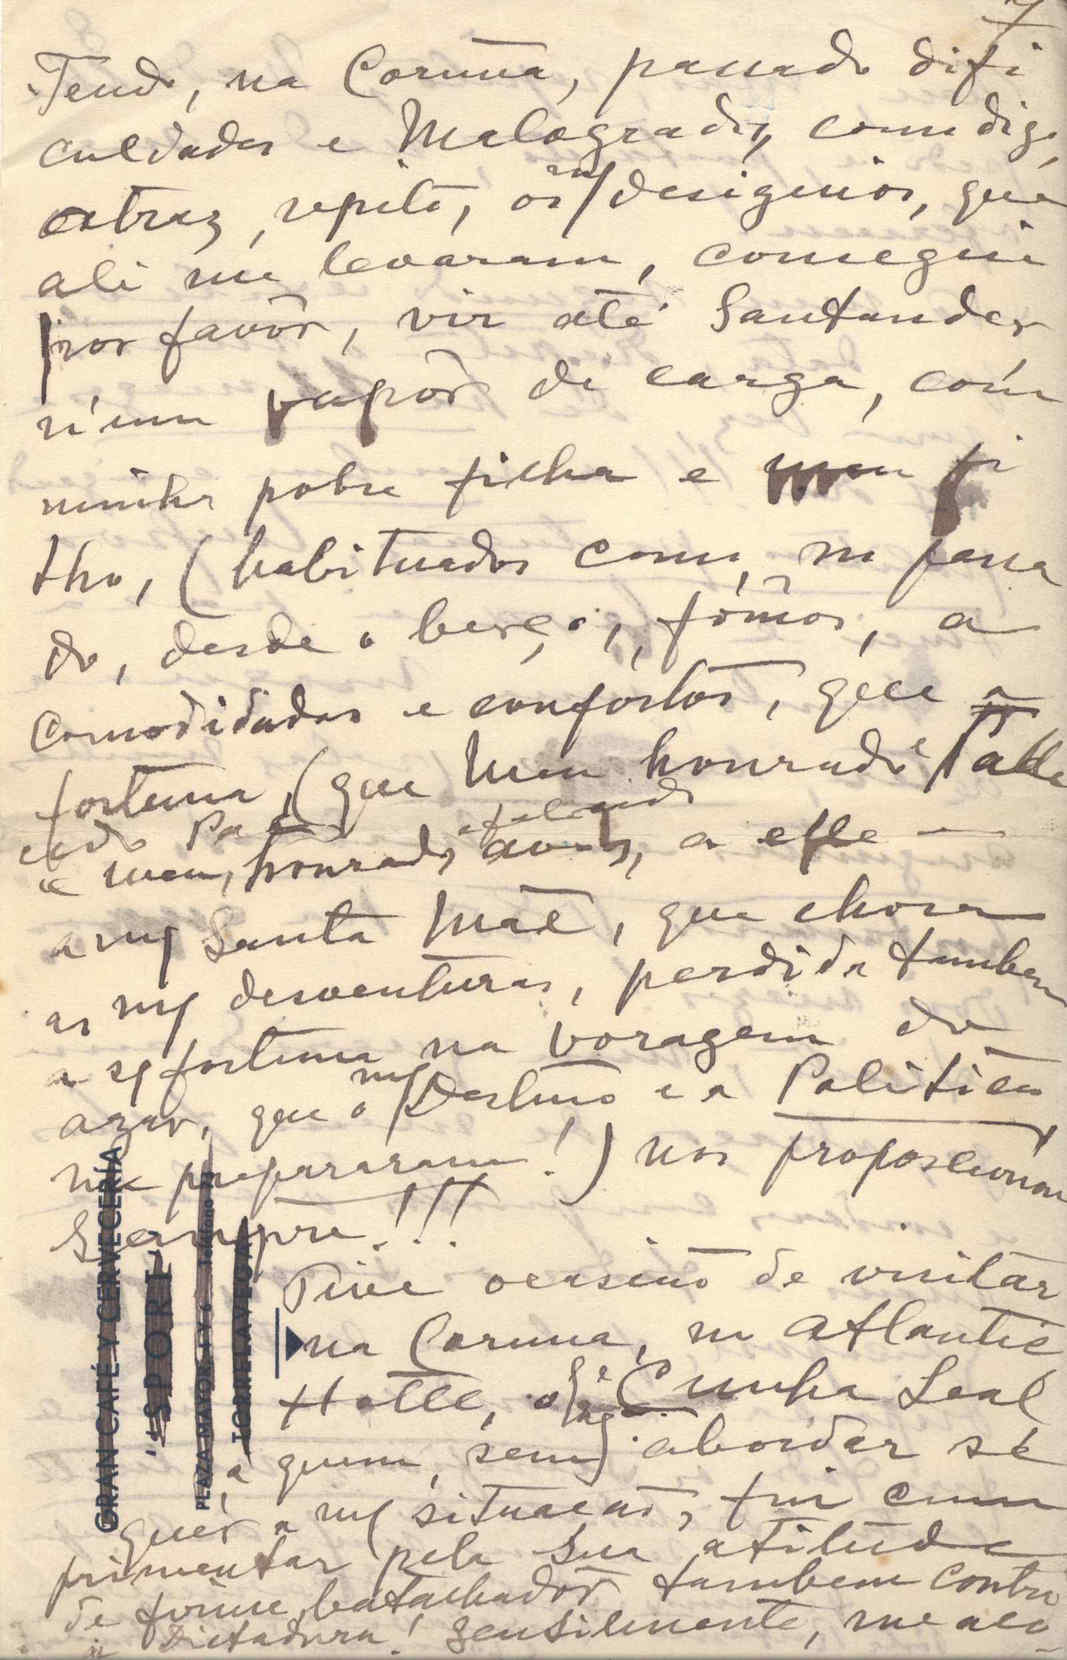 7
Tendo, na Coruña, passado difi
culdades e Malogrados, como digo
atraz, repito, os meus desígnios, que
ali me levaram, consegui
por favôr, vir até Santander
n'um vapôr de carga, com
minha pobre filha e meu fi
lho, (habituados como, no passa
do, desde o berço, fômos, a
comodidades e confortos, que a
fortuna, (que Meu honrado
e meu, honrado falecido Pae
a mª Santa Mãe, que chora
as mªs desventuras, perdida tambem
a sª fortuna na voragem do
azar, que o meu Destino e a Politica
nos prepararam!) nos proporcionou
sempre!!!
Tive ocasião de visitar
na Coruna, no Atlantic
Hotel, o Cunha Leal
a quem, sem abordar sé
quér a mª situação, fui cum
primentar pela sua atitude
de firme batalhador tambem contra
a Dictadura! Gentilmente, me aco-
GRAN CAFÉ Y CERVECERÍA
"SPORT"
PLAZA MAYOR, 5 Y 6
TORRELAVEGA